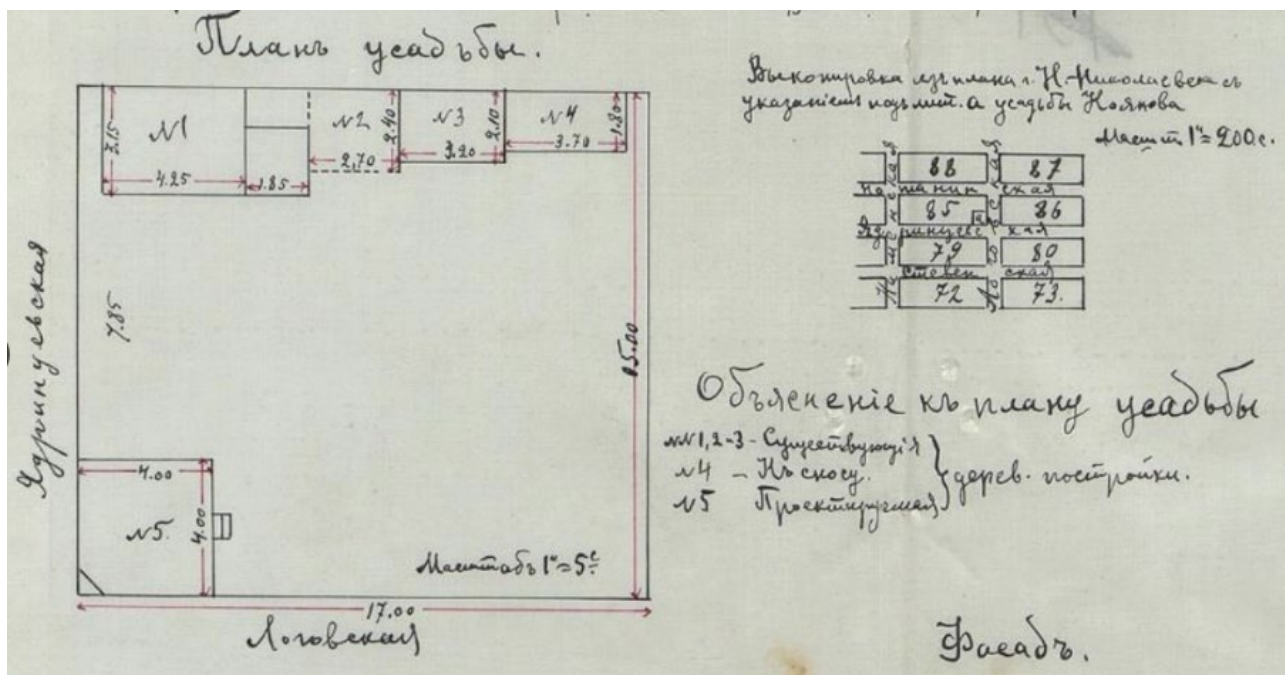 Планъ усадьбы.
№1
3.15
4.25
1.85
№2
2.40
2,70
№3
2.10
3.20
№4
1.80
3.70
Ядринцевская
7.85
15.00
4.00
№5.
4.00
Масштабъ 1"=5с.
17.00
Логовская
Выкопировка изъ плана г. Н.-Николаевска съ
указаніемъ подъ лит. а усадьбы Ноянова
Масшт. 1"=200с.
88
87
85
а
86
Ядринцевская
79
80
72
73.
Объясненіе къ плану усадьбы
№№1,2-3 - Существующія
№4 - Къ сносу.
№5 Проектируемая
дерев. постройки.
Фасадъ.